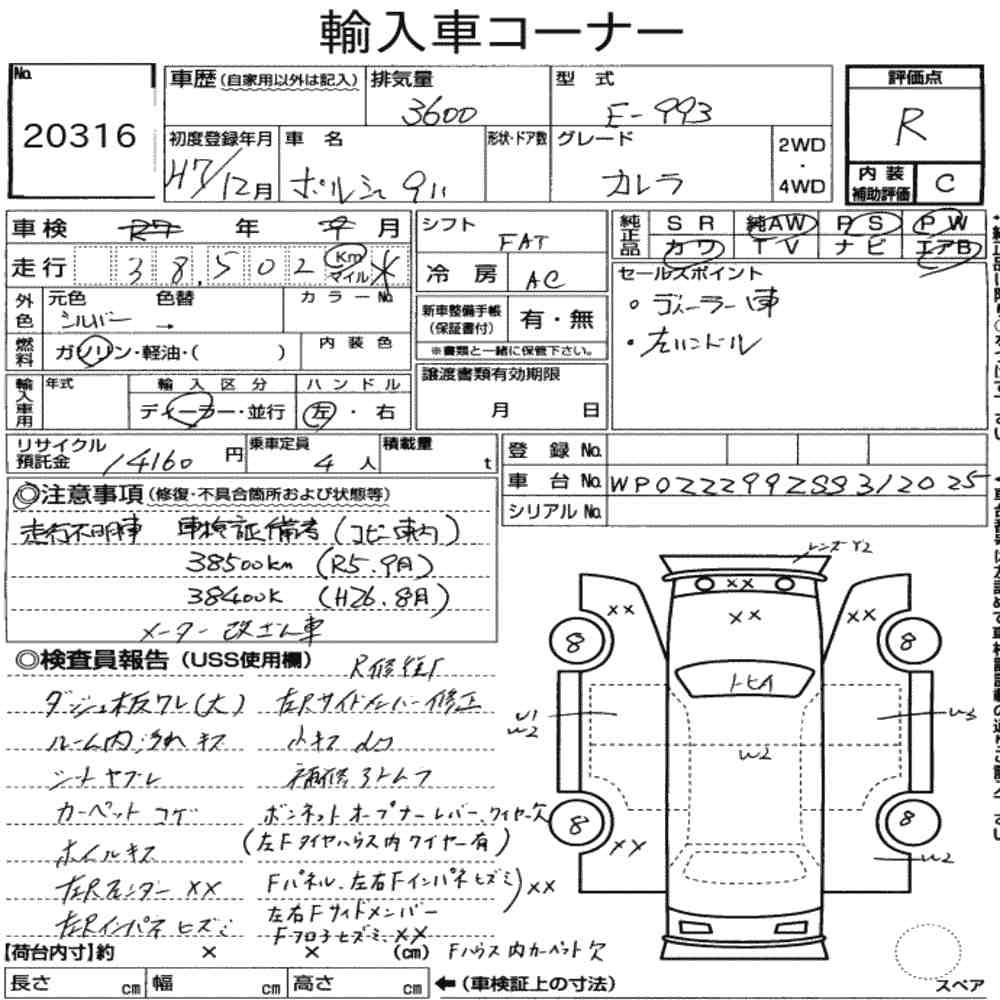 輸入車コーナー
No. 20316
車歴 (自家用以外は記入)
排気量 3600
型式 E-993
評価点 R
初度登録年月 H7/12月
車名 ポルシェ 911
形状・ドア数
グレード カレラ
2WD・4WD
内装補助評価 C
車検 年 月
シフト FAT
純正品 SR 純AW PS PW
カワ TV ナビ エアB
走行 38,502 Km マイル
冷房 AC
セールスポイント
・ディーラー車
・左ハンドル
外色 元色 シルバー → 色替 カラーNo.
新車整備手帳(保証書付) 有・無
※書類と一緒に保管下さい。
燃料 ガソリン・軽油・( )
内装色
輸入車用 年式 輸入区分 ディーラー・並行 ハンドル 左・右
譲渡書類有効期限 月 日
リサイクル預託金 14160円
乗車定員 4人
積載量 t
登録No.
車台No. WP0ZZZ99ZSS312025
シリアルNo.
◎注意事項 (修復・不具合箇所および状態等)
走行不明車 車検証備考 (コピー車内)
38500km (R5.9月)
38400K (H26.8月)
メーター改ざん車
◎検査員報告 (USS使用欄)
R修歴
ダッシュ板ワレ(大) 左Rサイドメンバー修正
ルーム内汚れキズ 小キズ
シートヤブレ 補修
カーペットコゲ ボンネットオープナーレバー、ワイヤー欠
ホイルキズ (左Fタイヤハウス内ワイヤー有)
左Rフェンダー XX Fパネル、左右Fインパネヒズミ XX
左Rインパネヒズミ 左右Fサイドメンバー
Fフロアヒズミ XX
Fハウス内カーペット欠
レンズY2
XX
XX
XX
XX
8
8
トビイ
W2
W3
W2
8
8
XX
W2
スペア
【荷台内寸】約 × × (cm)
長さ cm 幅 cm 高さ cm ←(車検証上の寸法)